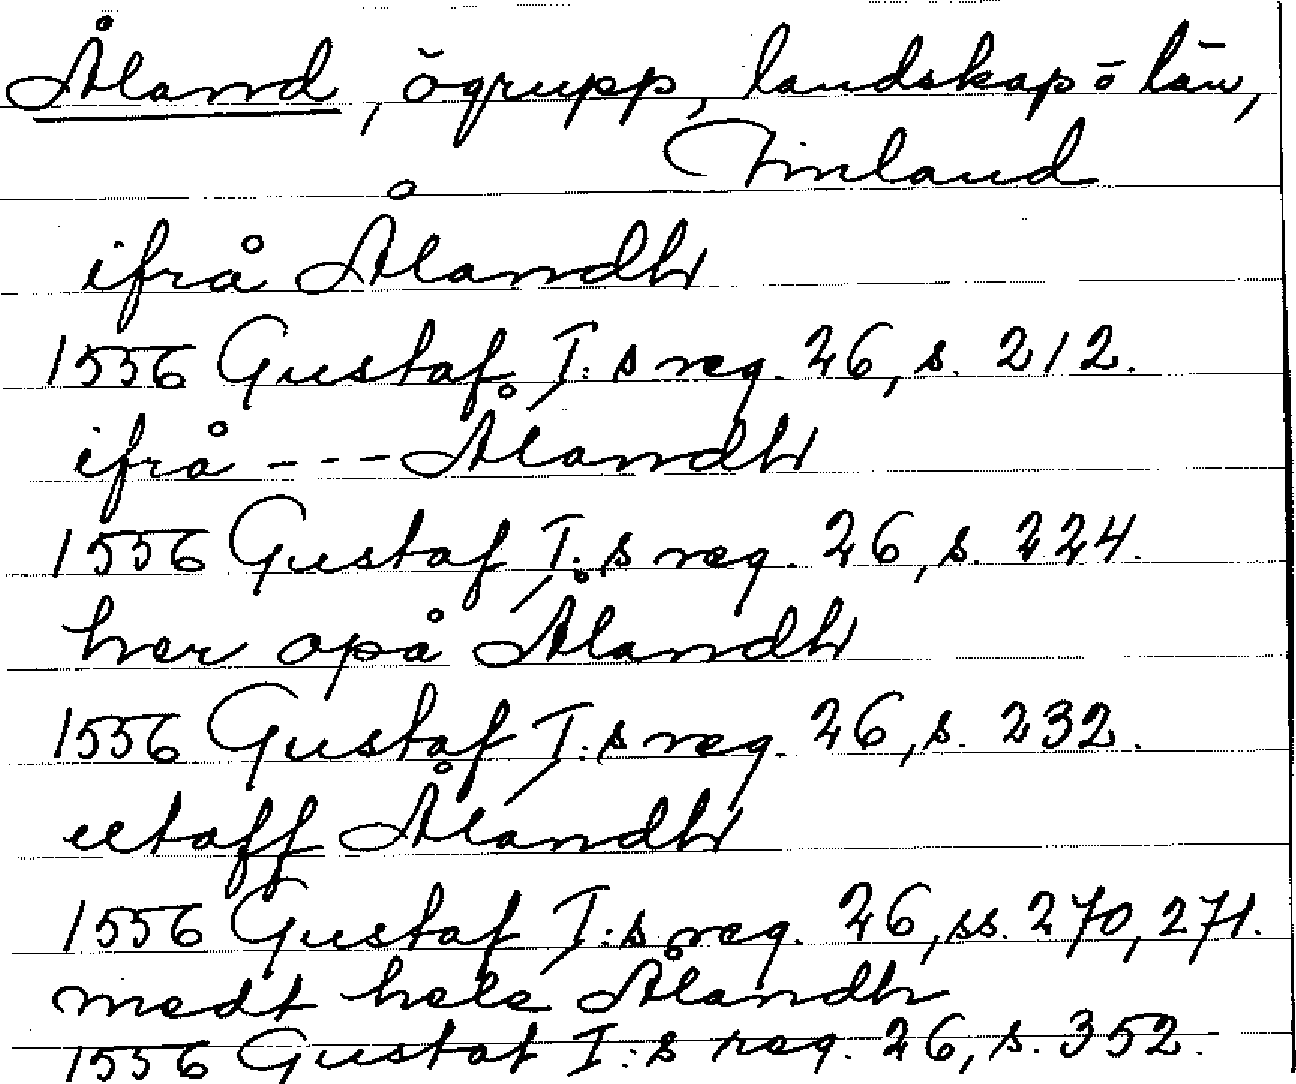 Åland, ögrupp, landskap o län,
Finland
ifrå Ålandh
1556 Gustaf I:s reg. 26, s. 212.
ifrå --- Ålandh
1556 Gustaf I:s reg. 26, s. 224.
her opå Ålandh
1556 Gustaf I:s reg. 26, s. 232.
utaff Ålandh
1556 Gustaf I:s reg. 26, ss. 270, 271.
medt hele Ålandh
1556 Gustaf I:s reg. 26, s. 352.